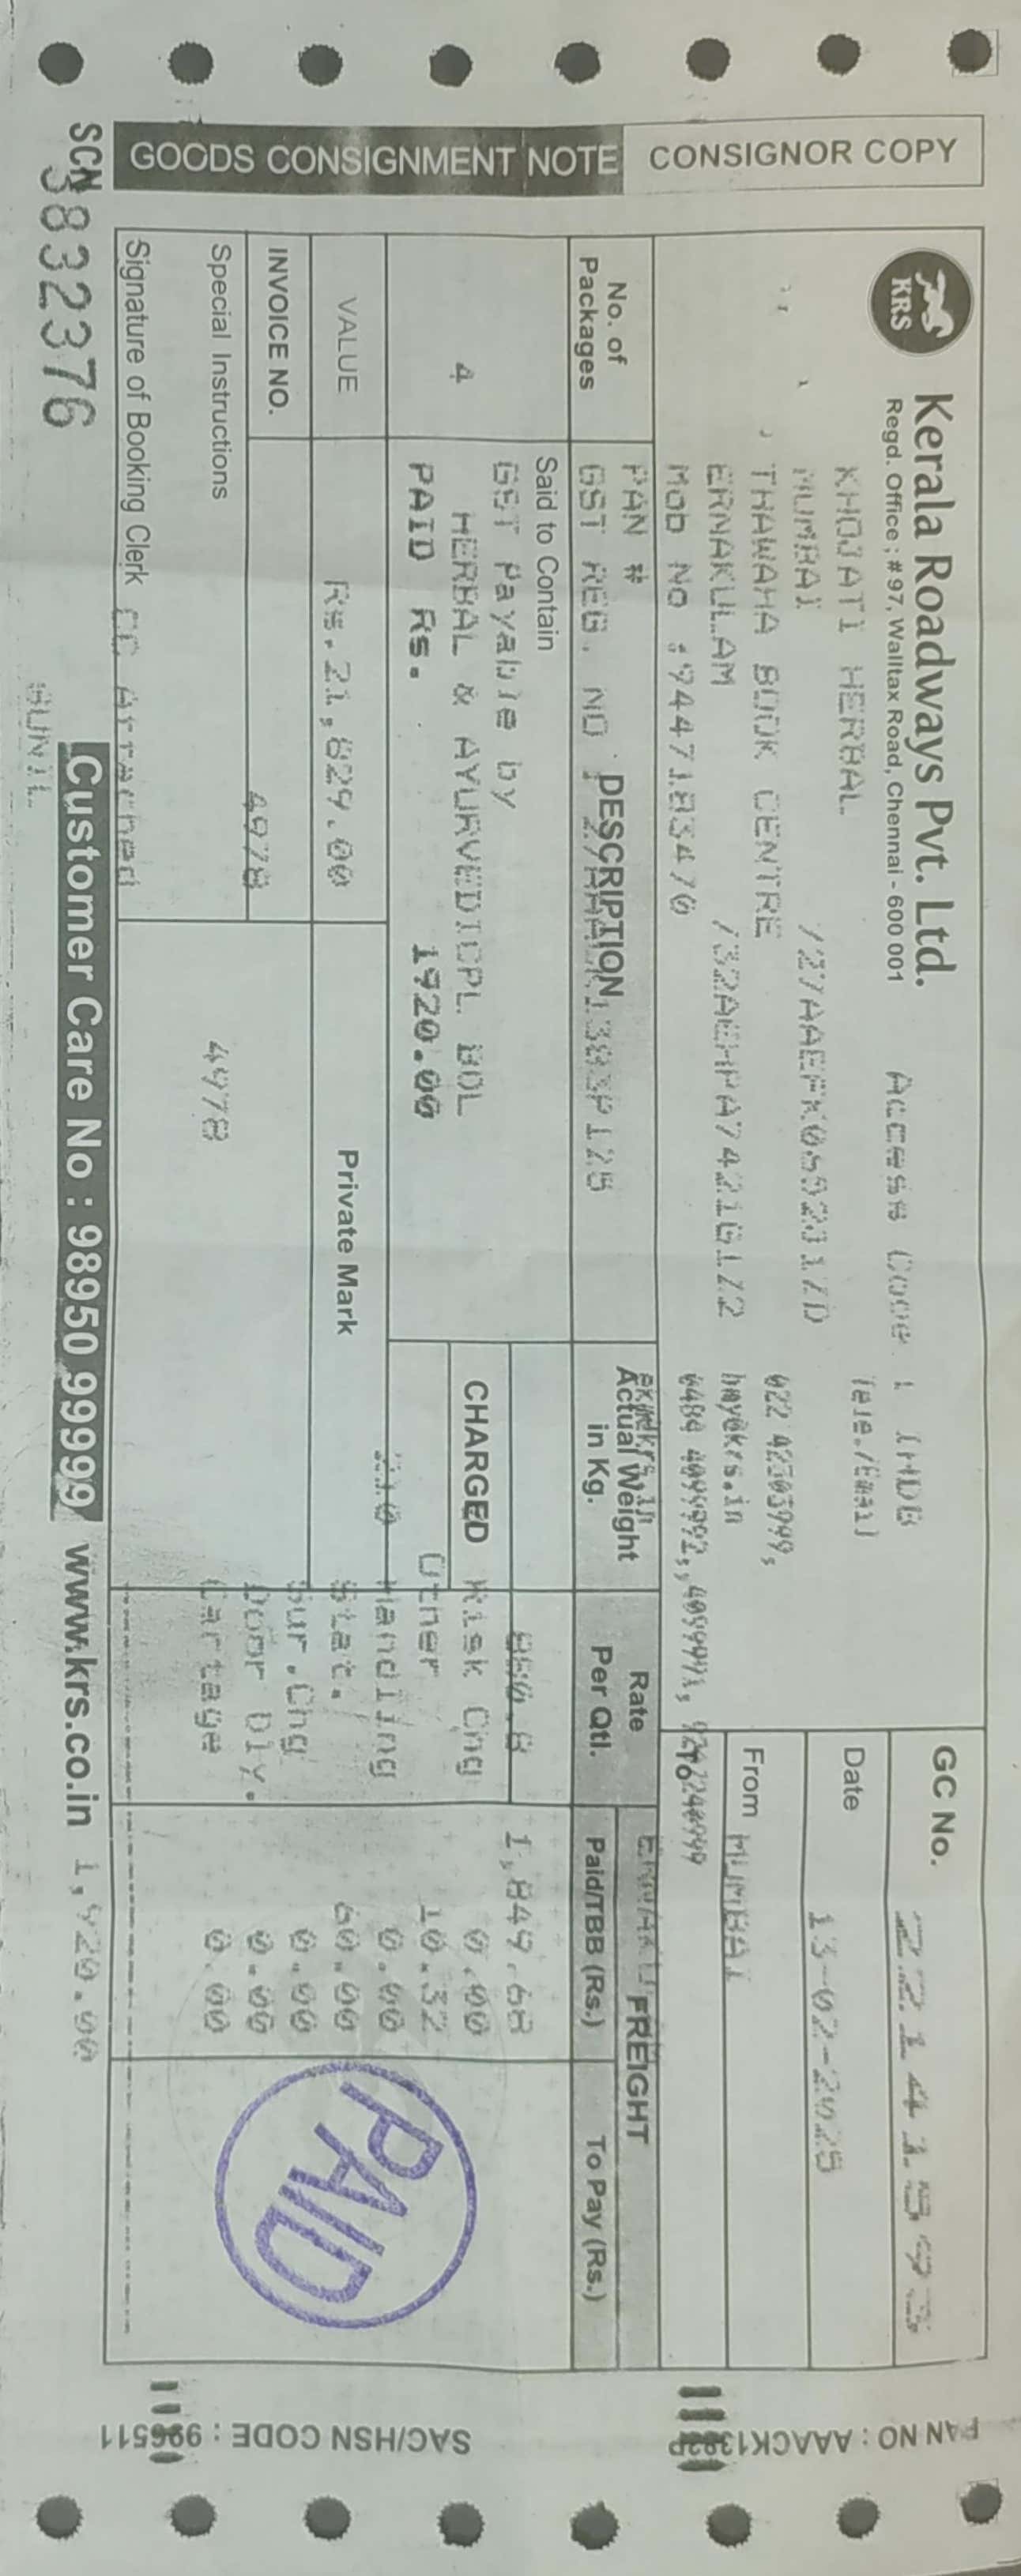 CONSIGNOR COPY
GOODS CONSIGNMENT NOTE
KRS
Kerala Roadways Pvt. Ltd.
Regd. Office ; # 97, Walltax Road, Chennai - 600 001
Access Code :
KHOJATI HERBAL
Tele./Email
MUMBAI
022 42303999,
THAWAHA BOOK CENTRE
ERNAKULAM
/32AEHPA7421G1Z2
Mob No :9447183470
GC No.
Date 13-02-2025
From MUMBAI
To
PAN #
GST REG. NO
No. of Packages
DESCRIPTION
Actual Weight in Kg.
Rate Per Qtl.
FREIGHT
Paid/TBB (Rs.)
To Pay (Rs.)
Said to Contain
GST Payable by
1,849.68
4
HERBAL & AYURVEDICPL BOL
CHARGED
Risk Chg 0.00
PAID Rs. 1920.00
Other 10.32
Handling 0.00
VALUE
Rs.21,829.00
Private Mark
Stat. 60.00
Sur.Chg 0.00
INVOICE NO.
4978
Door Dly. 0.00
Special Instructions
4978
Cartage 0.00
PAID
Signature of Booking Clerk CC Attached
SCN 3832376
Customer Care No : 98950 99999
www.krs.co.in
1,920.00
SUNIL
PAN NO : AAACK1383P
SAC/HSN CODE : 996511